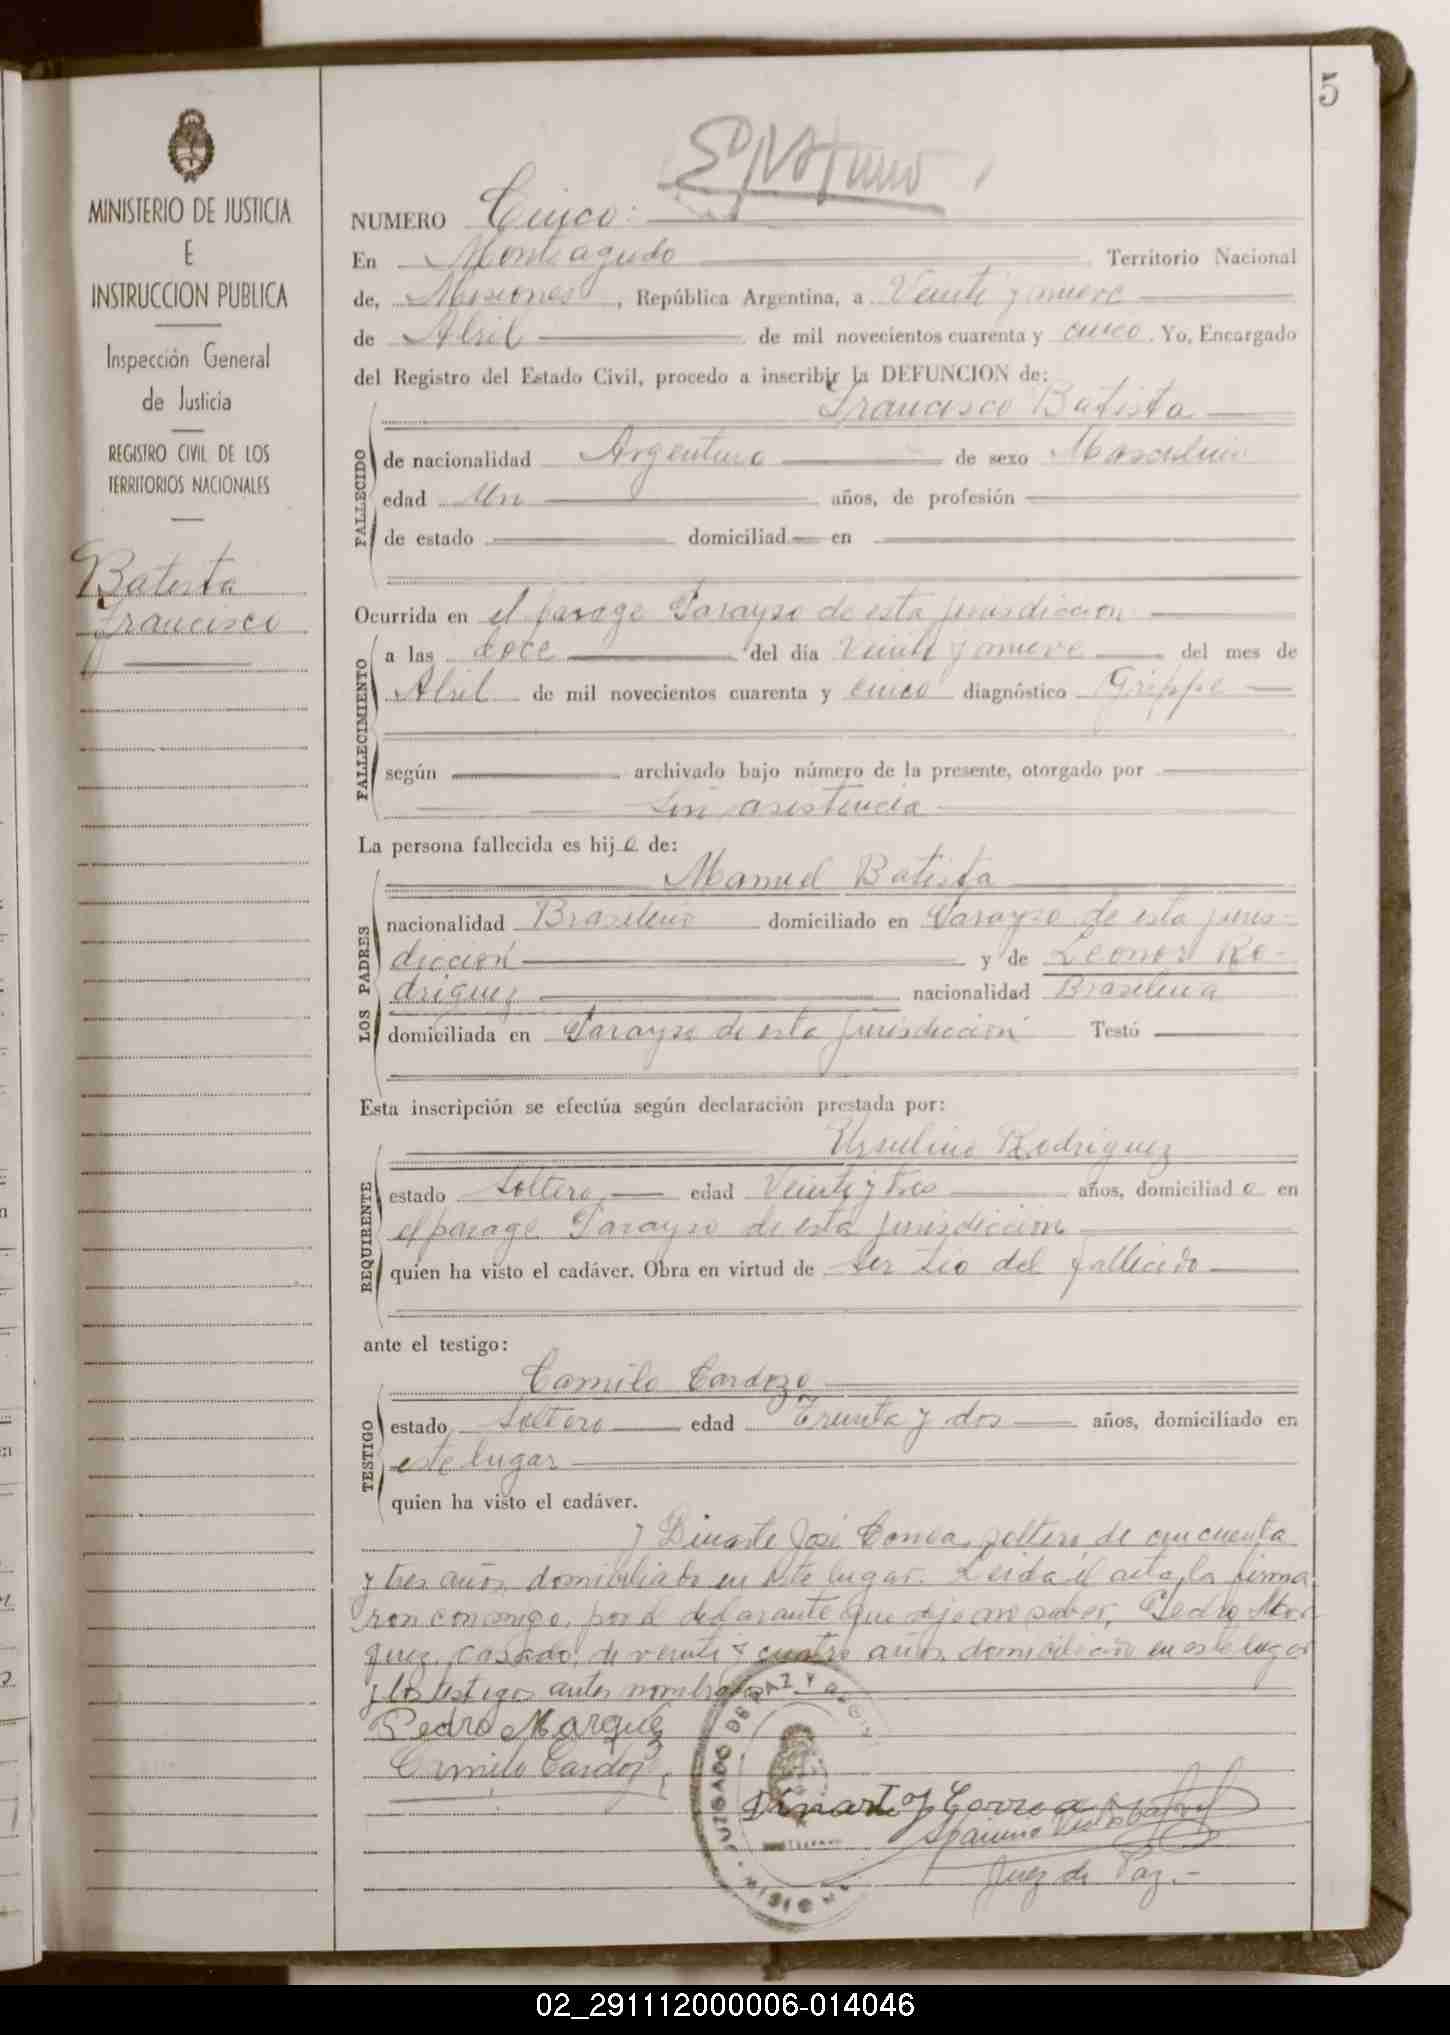 5
MINISTERIO DE JUSTICIA
E
INSTRUCCION PUBLICA
Inspección General
de Justicia
REGISTRO CIVIL DE LOS
TERRITORIOS NACIONALES
Batista
Francisco
NUMERO Cinco:
En Monteagudo Territorio Nacional
de, Misiones, República Argentina, a Veinte y nueve
de Abril de mil novecientos cuarenta y cinco. Yo, Encargado
del Registro del Estado Civil, procedo a inscribir la DEFUNCION de:
Francisco Batista
FALLECIDO
de nacionalidad Argentino de sexo Masculino
edad Un años, de profesión
de estado domiciliad en
Ocurrida en el parage Parayso de esta jurisdiccion
FALLECIMIENTO
a las doce del día veinte y nueve del mes de
Abril de mil novecientos cuarenta y cinco diagnóstico Grippe
según archivado bajo número de la presente, otorgado por
Sin asistencia
La persona fallecida es hijo de:
LOS PADRES
Manuel Batista
nacionalidad Brasileno domiciliado en Parayso de esta juris-
diccion y de Leonor Ro-
driguez nacionalidad Brasilena
domiciliada en Parayso de esta jurisdiccion Testó
Esta inscripción se efectúa según declaración prestada por:
REQUIRENTE
Ursulino Rodriguez
estado Soltero edad Veinte y tres años, domiciliado en
el parage Parayso de esta jurisdiccion
quien ha visto el cadáver. Obra en virtud de ser tio del fallecido
ante el testigo:
TESTIGO
Camilo Cardozo
estado Soltero edad Treinta y dos años, domiciliado en
este lugar
quien ha visto el cadáver.
y Dinarte José Correa, soltero de cincuenta
y tres años domiciliado en este lugar. Leida el acta, la firma
ron conmigo, por el declarante que dijo no saber, Pedro Mar
quez, casado, de veinte y cuatro años, domiciliado en este lugar
y los testigos antes nombrados
Pedro Marquez
Camilo Cardozo
JUZGADO DE PAZ Y
Dinarte J Correa
Juez de Paz.-
02_291112000006-014046